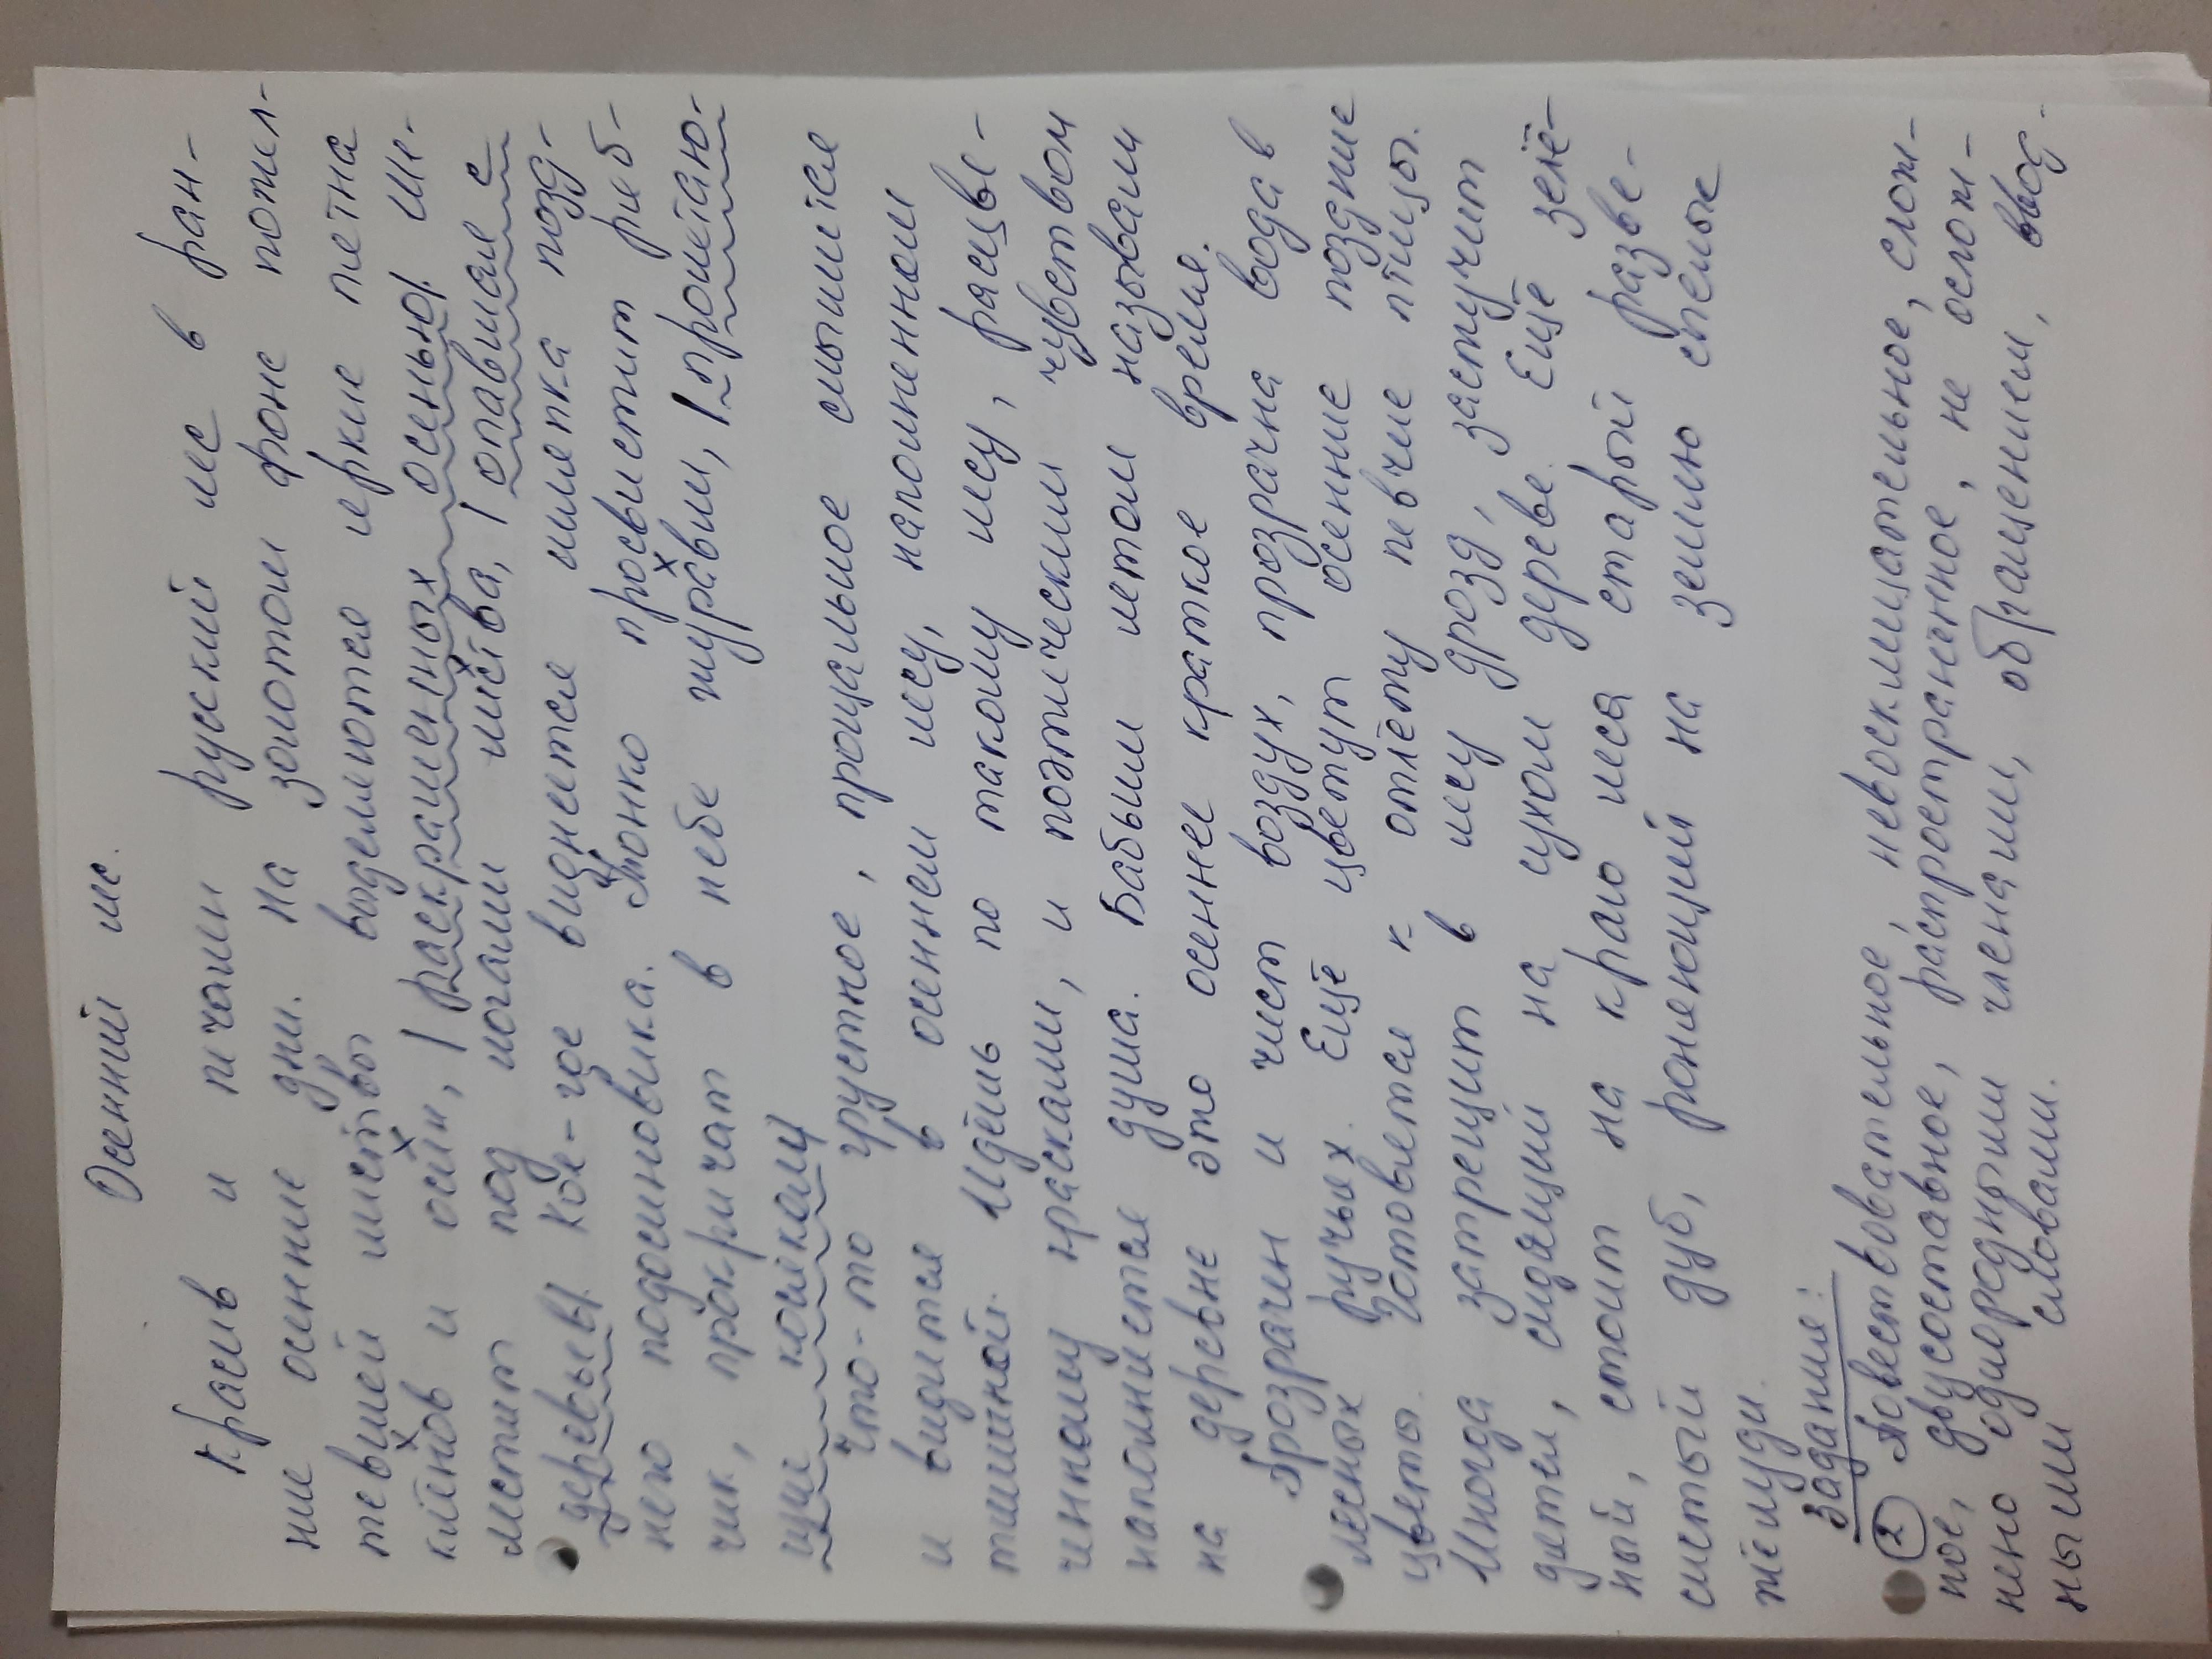 Осенний лес.
Красив и пичали руский лес в ран-
ние осение дни. На золотом фоне пожел-
тевшей листвы воделяются яркие петна
клёнов и осин, | раскрашенных осенью| Ше-
лестит под ногами листва, | опавшая с
деревьев| Кое-где виднеится шляпка позд-
него подосиновика. Тонко просвистит ряб-
чик, прокричат в небе журавли, | проштаю-
щие косяком|
Что-то грустное, прощальное слышится
и видится в осеннем лесу, наполненном
тишиной. Идёшь по такому лесу, расцве-
ченному красками, и поэтическим чувством
наполняется душа. Бабьим летом называли
на деревне это осеннее краткое время.
Прозрачен и чист воздух, прозрачна вода в
лесных ручьях. Ещё цветут осенние поздние
цветы. Готовятся к отлёту певчие птицы.
Иногда затрещит в лесу дрозд, застучит
дятел, сидящий на сухом дереве. Ещё зелё-
ный, стоит на краю леса старый разве-
систый дуб, роняющий на землю спелые
жёлуди.
Задание:
② Повествовательное, невосклицательное, слож-
ное, двусоставное, распространенное, не ослож-
нено однородными членами, обращением, ввод-
ными словами.